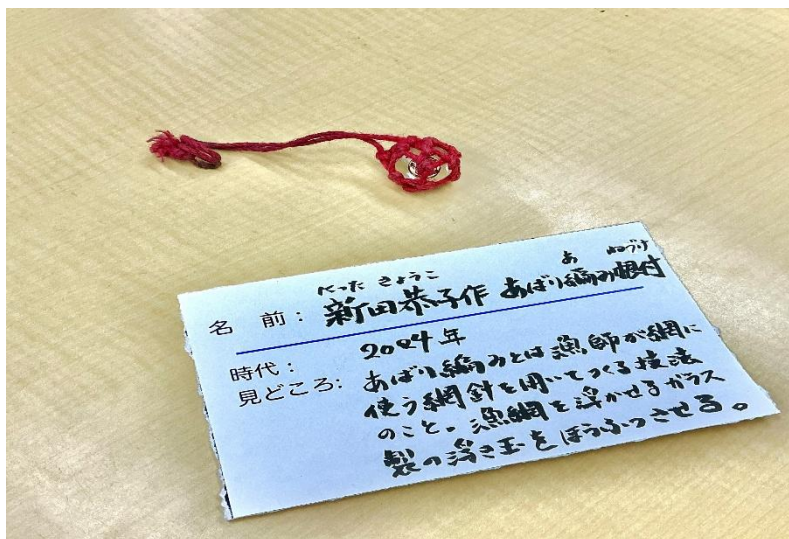 にった きょうこ あ ねづけ
名 前： 新田恭子作 あばり編み根付
時代： 2004年
見どころ： あばり編みとは漁師が網に
使う網針を用いてつくる技法
のこと。漁網を浮かせるガラス
製の浮き玉をほうふつさせる。